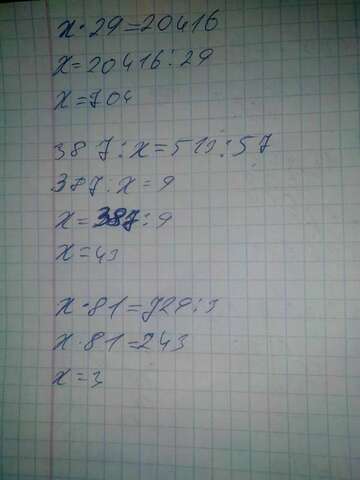 x · 29 = 20416
x = 20416 : 29
x = 704
387 : x = 513 : 57
387 : x = 9
x = 387 : 9
x = 43
x · 81 = 729 : 3
x · 81 = 243
x = 3